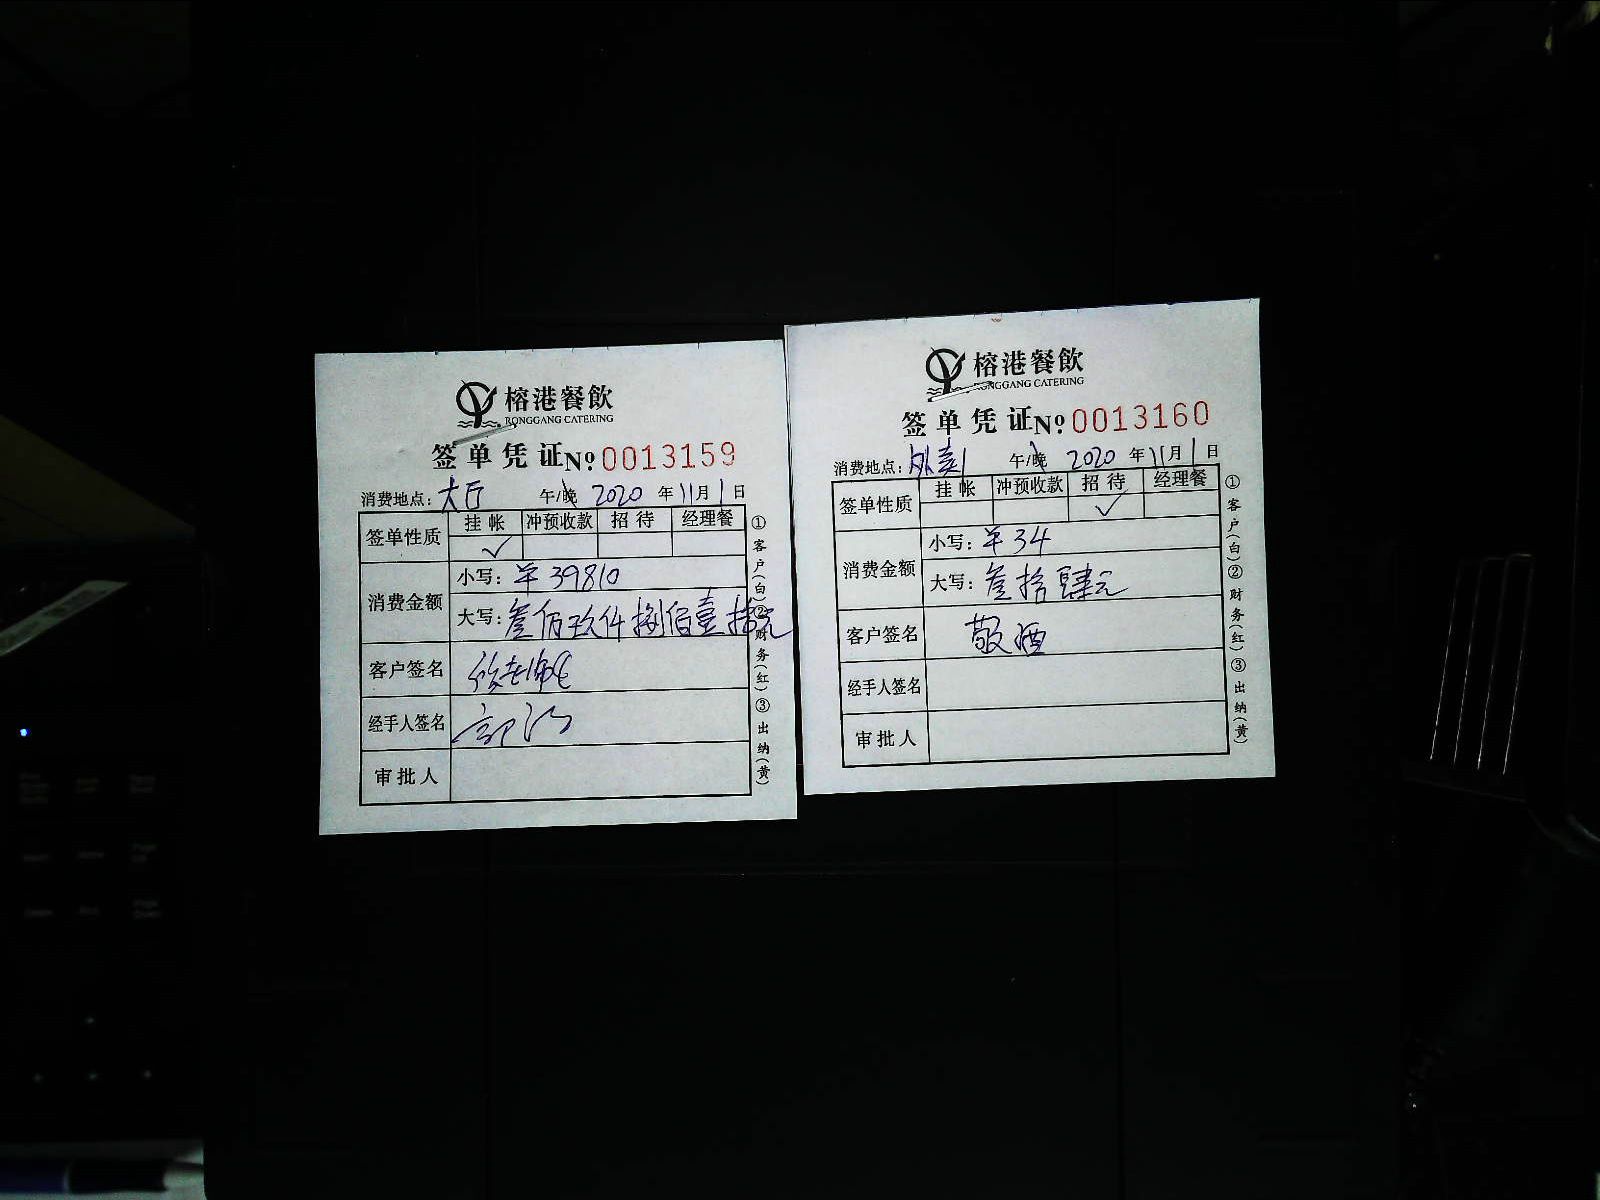 榕港餐飲
RONGGANG CATERING
签单凭证№0013159
消费地点：大厅 午/晚 2020年11月1日
签单性质 挂帐 冲预收款 招待 经理餐
✓
消费金额 小写：￥39810
大写：叁佰玖仟捌佰壹拾元
客户签名
经手人签名
审批人
①客户(白)②财务(红)③出纳(黄)
榕港餐飲
RONGGANG CATERING
签单凭证№0013160
消费地点：外卖 午/晚 2020年11月1日
签单性质 挂帐 冲预收款 招待 经理餐
✓
消费金额 小写：￥34
大写：叁拾肆元
客户签名 敬酒
经手人签名
审批人
①客户(白)②财务(红)③出纳(黄)